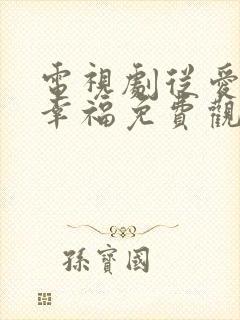 電視劇從愛
幸福免費觀
孫寶國